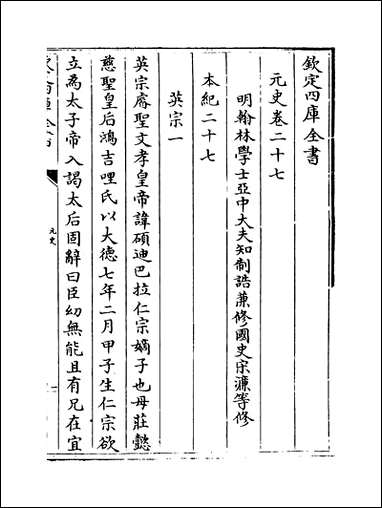 欽定四庫全書
元史卷二十七
明翰林學士亞中大夫知制誥兼修國史宋濂等修
本紀二十七
英宗一
英宗睿聖文孝皇帝諱碩迪巴拉仁宗嫡子也母莊懿
慈聖皇后鴻吉哩氏以大德七年二月甲子生仁宗欲
立為太子帝入謁太后固辭曰臣幼無能且有兄在宜
元史